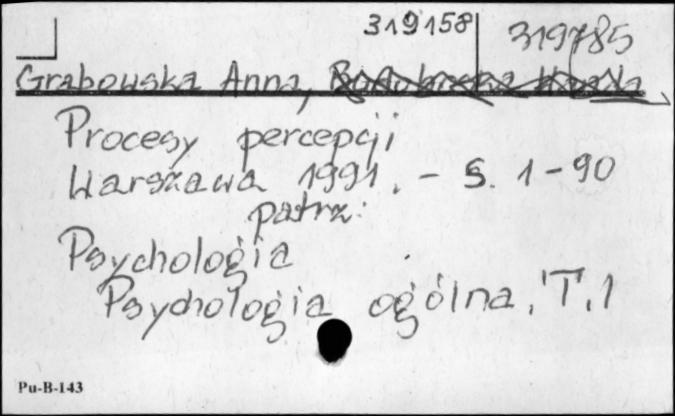 319158 319785
Grabowska Anna,
Procesy percepcji
Warszawa 1991. - S. 1-90
patrz:
Psychologia
Psychologia ogólna. T. 1
Pu-B-143